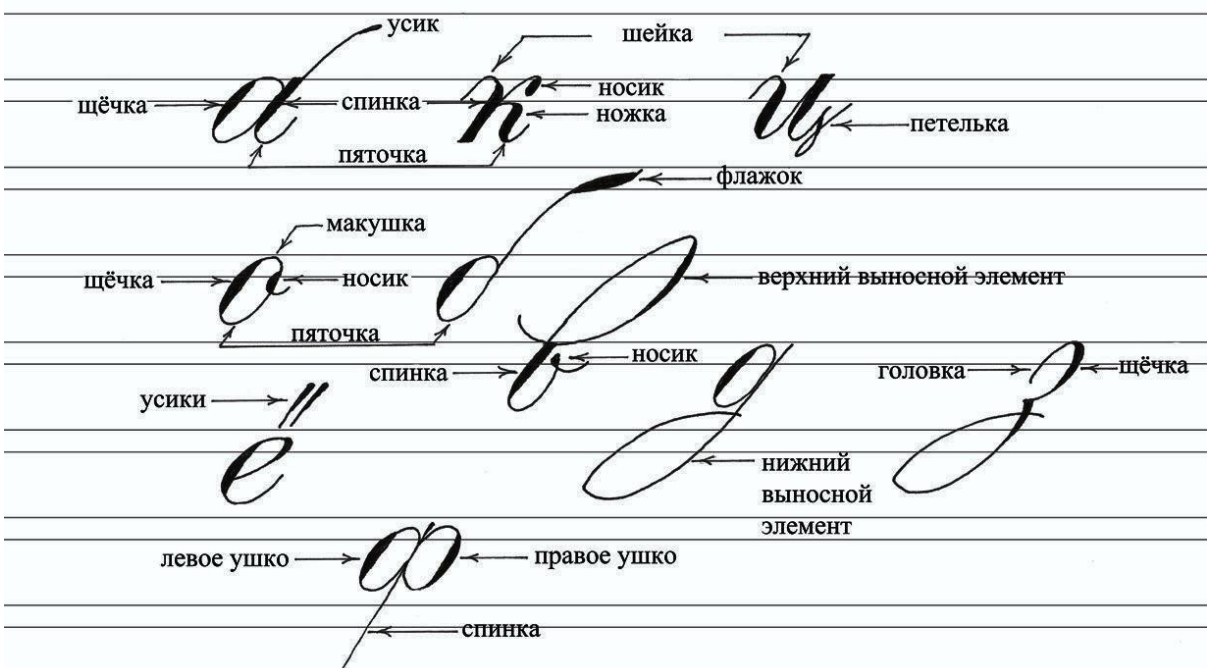 усик
шейка
щёчка а спинка к носик ц
ножка
петелька
пяточка
флажок
макушка
щёчка о носик б верхний выносной элемент
пяточка
спинка в носик
д
головка з щёчка
усики
ё
нижний
выносной
элемент
левое ушко ф правое ушко
спинка